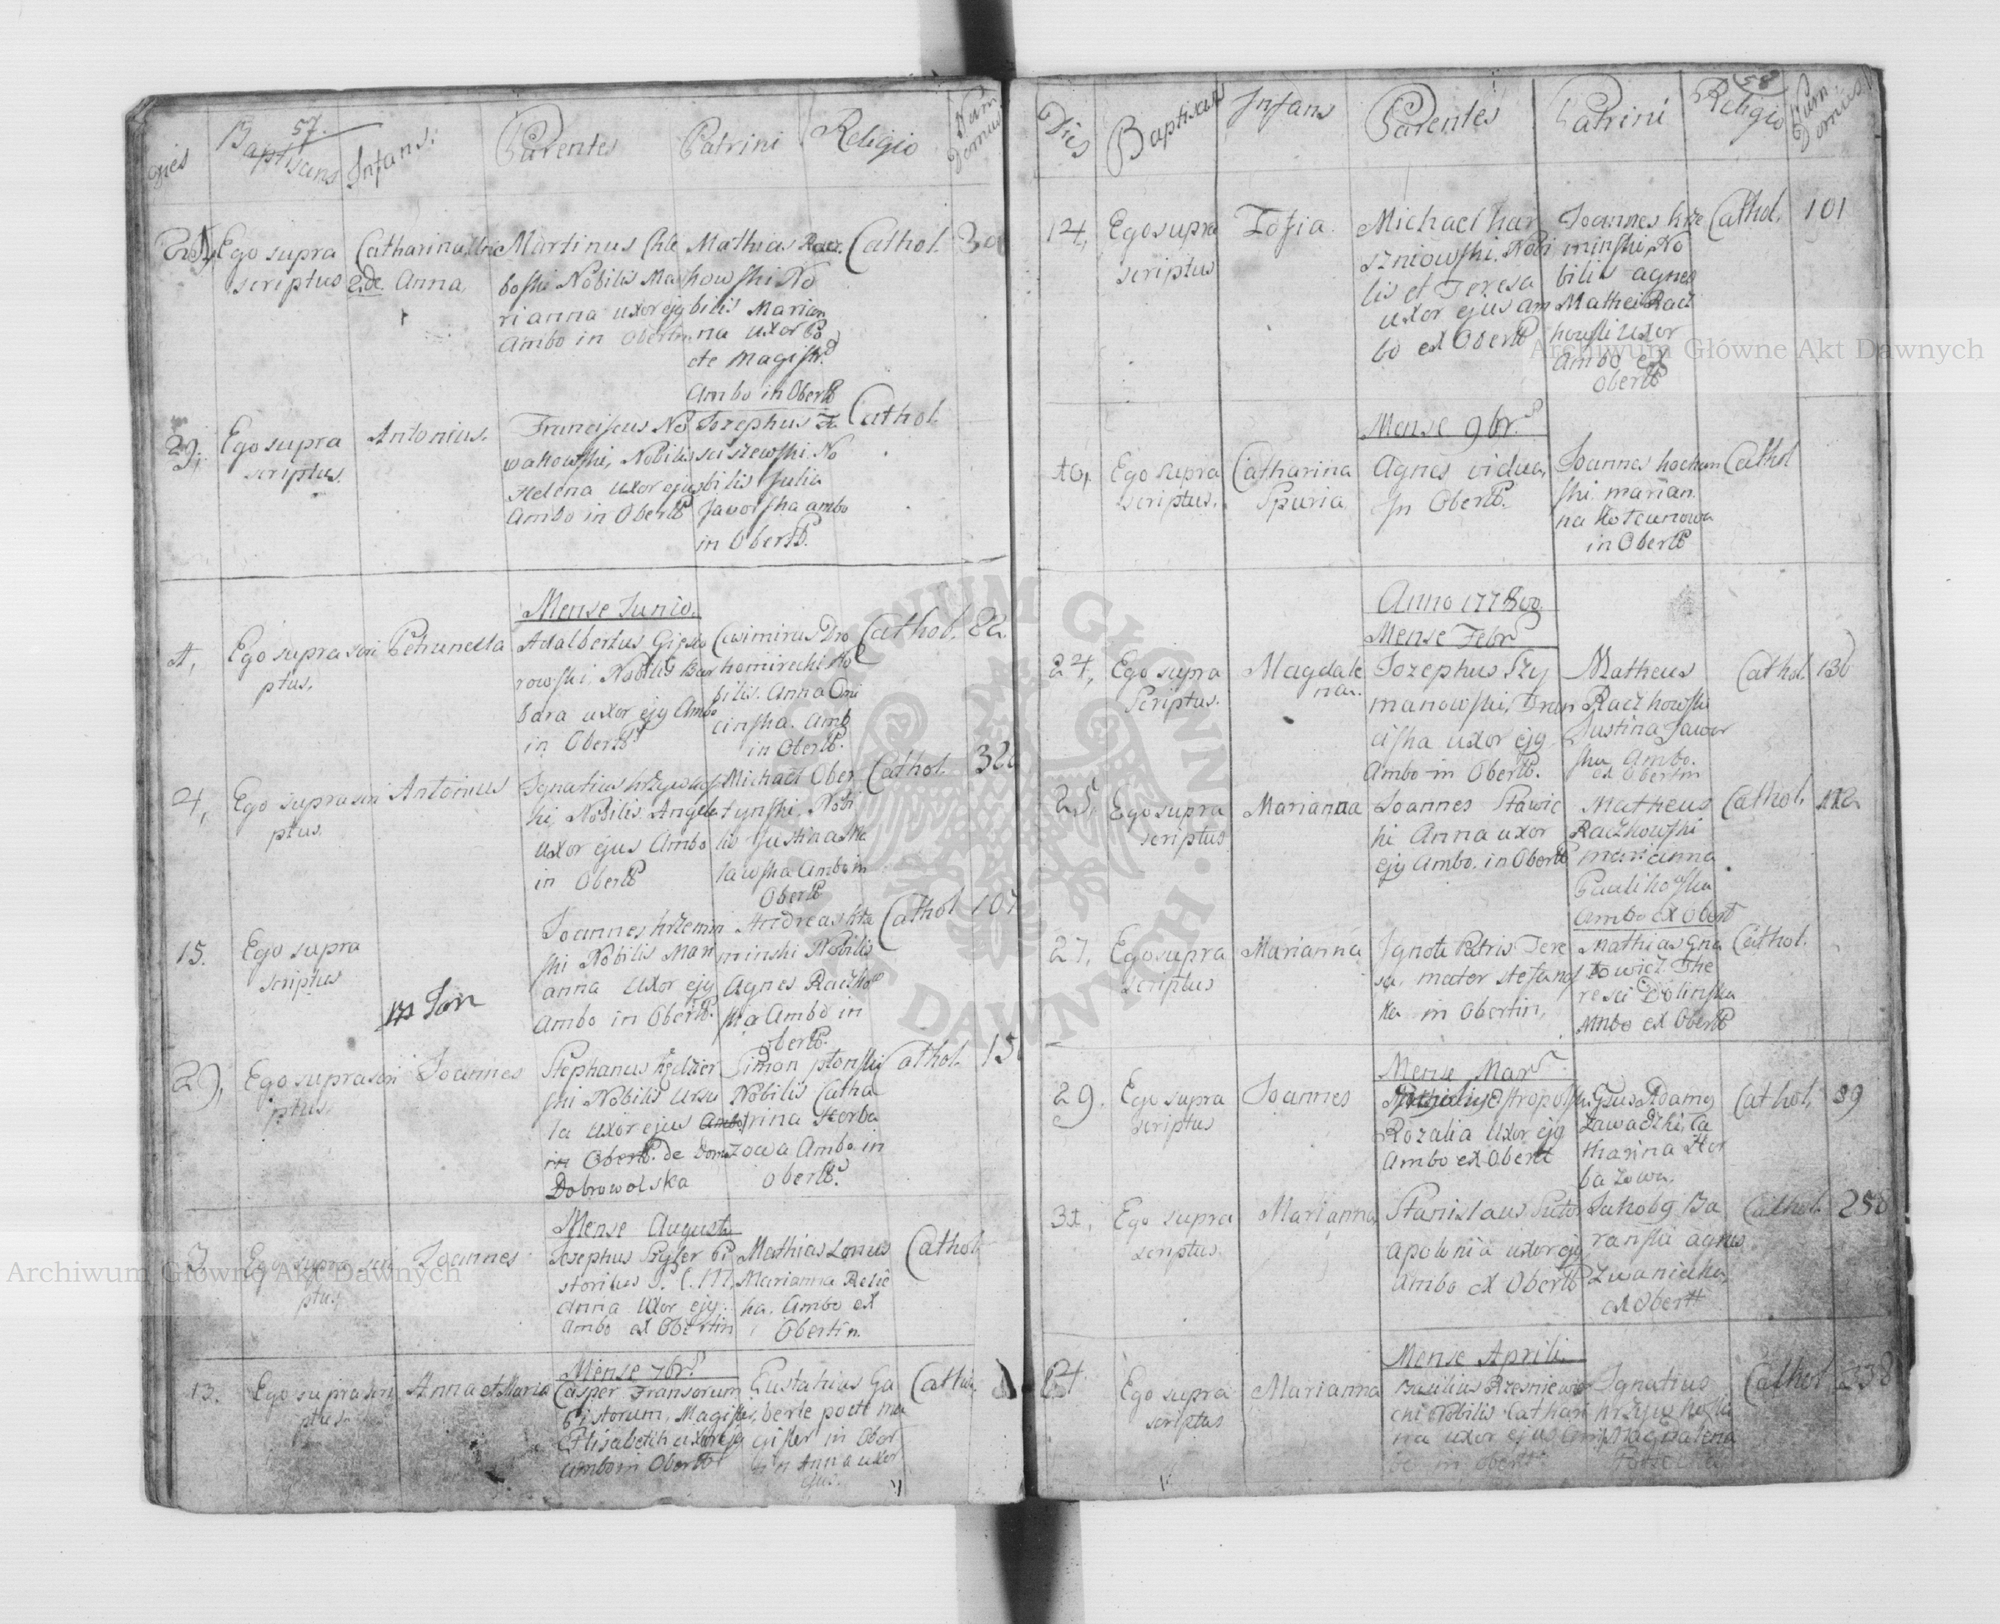 57.
Dies Baptisans Infans: Parentes Patrini Religio Num Domus
Ego supra
scriptus
Catharina
2de Anna
Martinus Chle
boski Nobilis Ma
rianna uxor ejq
Ambo in Obertin
Mathias Racz
kowski No
bilis Marian
na uxor Po
cte Magistr.
Ambo in Obert.
Cathol.
29.
Ego supra
scriptus.
Antonius.
Franciscus No
wakowski, Nobilis
Helena uxor ejus
Ambo in Obert.
Jozephus
sciszewski No
bilis Julia
Javorska ambo
in Obert.
Cathol.
Mense Junio.
Ego suprascri
ptus.
Petrunella
Adalbertus
rowski, Nobilis Bar
bara uxor ejq Ambo
in Obert.
Casimirus Dro
homirecki No
bilis. Anna
cinska. Amb
in Obert.
Cathol.
82.
4,
Ego suprascri
ptus.
Antonius
Ignatius Krzywkows
ki, Nobilis. Angela
uxor ejus Ambo
in Obert
Michael Ober
tynski, Nobi
lis Justina Ska
lawska Ambo in
Obert
Cathol.
15.
Ego supra
scriptus
Joannes Krzemin
ski Nobilis Mari
anna uxor ejq
Ambo in Obert.
Andreas Krze
minski Nobilis
Agnes Raczkow
ska Ambo in
Obert.
Cathol
107
29,
Ego suprascri
ptus.
Joannes
Stephanus
ski Nobilis Ursu
la uxor ejus Ambo
in Obert. de Domo
Dobrowolska
Simon
Nobilis Catha
rina Horba
zowa Ambo in
Obert.
Cathol.
Mense Augusti
3.
Ego suprascri
ptus
Joannes
Josephus Pryfer Pi
storibus S. C. M.
Anna Uxor ejq.
Ambo ex Obertin
Mathias Lonus
Marianna
ka. Ambo ex
Obertin.
Cathol.
Mense 7br
13.
Ego suprascri
ptus.
Anna et Maria
Casper Fransorum
Pistorum, Magister,
Elisabeth uxor ejq
ambo in Obert
Eustahius Ga
berle pocti ma
gister in Ober
tin Anna uxor
ejus.
Cathol.
58
Dies Baptisans Infans Parentes Patrini Religio Num. Domus
14,
Ego supra
scriptus
Zofia.
Michael Kar
szniowski. Nobi
lis et Teresa
uxor ejus am
bo ex Obert
Joannes Krze
minski, No
bilis agnes
Mathei Racz
kowski uxor
Ambo ex
Obert
Cathol.
101
Mense 9br.
10,
Ego supra
scriptus.
Catharina
Spuria
Agnes vidua,
In Obert.
Joannes Kochan
ski. marian
na Kotcunowa
in Obert
Cathol
Anno 1778vo.
Mense Febr
24,
Ego supra
Scriptus.
Magdale
na.
Jozephus Szy
manowski, Fran
ciska uxor ejq
Ambo in Obert.
Matheus
Raczkowski
Justina Jawor
ska Ambo.
ex Obertin
Cathol.
136
25,
Ego supra
scriptus
Marianna
Joannes Stawic
ki Anna uxor
ejq Ambo. in Obert
Matheus
Raczkowski
marianna
Paulikowska
Ambo ex Obert
Cathol.
112
27,
Ego supra
scriptus
Marianna
Ignoti Patris Tere
sa, mater Stefanows
ka in Obertin,
Mathias Gna
towicz. The
resia Dolinska
Ambo ex Obert
Cathol.
Mense Mar
29.
Ego supra
scriptus
Joannes
Ostropolski
Rozalia Uxor ejq
Ambo ex Obert
Gsus Adamq
Zawadzki, Ca
tharina Hor
bazowa.
Cathol.
89
31,
Ego supra
scriptus.
Marianna
Stanislaus
apolonia uxor ejq
Ambo ex Obert
Jakobq Ba
ranski agnes
Zwanicka,
ex Obert
Cathol.
258
Mense Aprili
24
Ego supra
scriptus
Marianna
Basilius Rzesniewie
cki Nobilis Cathari
na uxor ejus Am
bo in Obert
Ignatius
Krzywkowski
Magdalena
Cathol.
338
Archiwum Główne Akt Dawnych
Archiwum Główne Akt Dawnych
ARCHIWUM GŁÓWNE AKT DAWNYCH